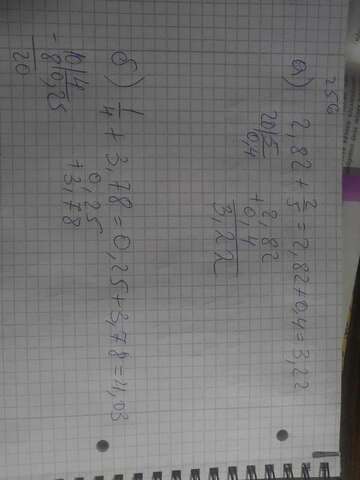 256
а) 2,82 + 2/5 = 2,82 + 0,4 = 3,22
20|5
0,4
+ 2,82
0,4
3,22
б) 1/4 + 3,78 = 0,25 + 3,78 = 4,03
- 10|4
8 0,25
20
0,25
+ 3,78